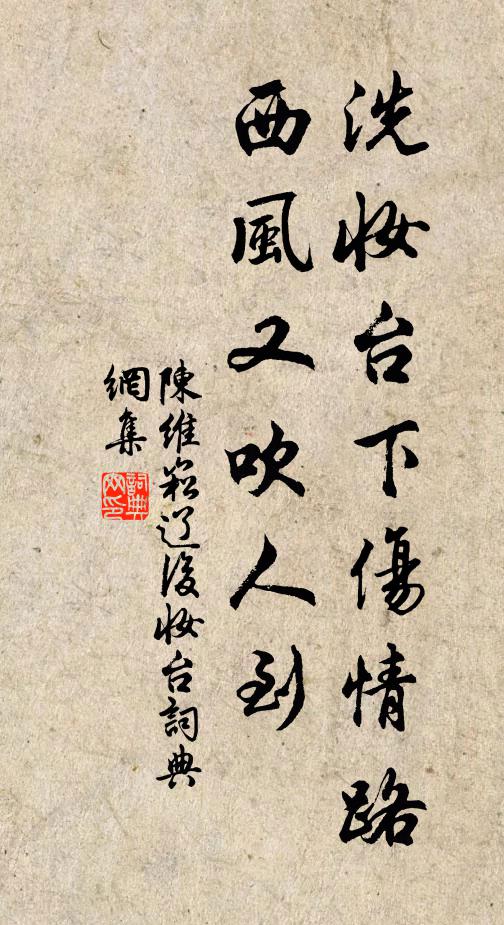 洗妆台下傷情路
西風又吹人到
陳維崧辽後妆台詞典
網集
詞典
网印